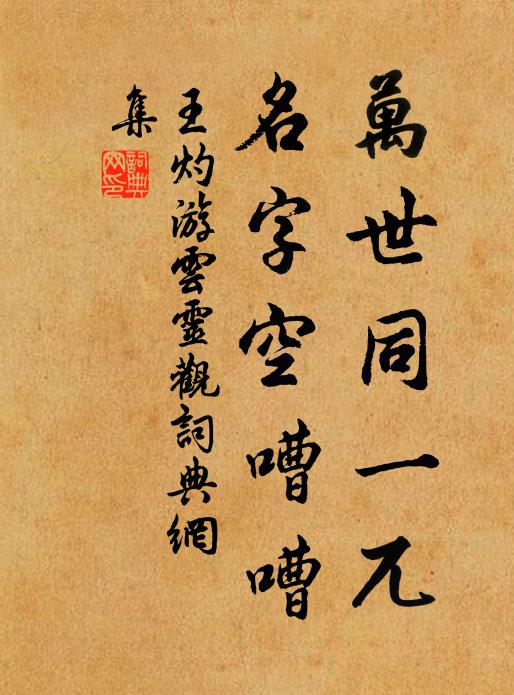 萬世同一兀
名字空嘈嘈
王灼游雲靈觀詞典網
集
詞典
网印